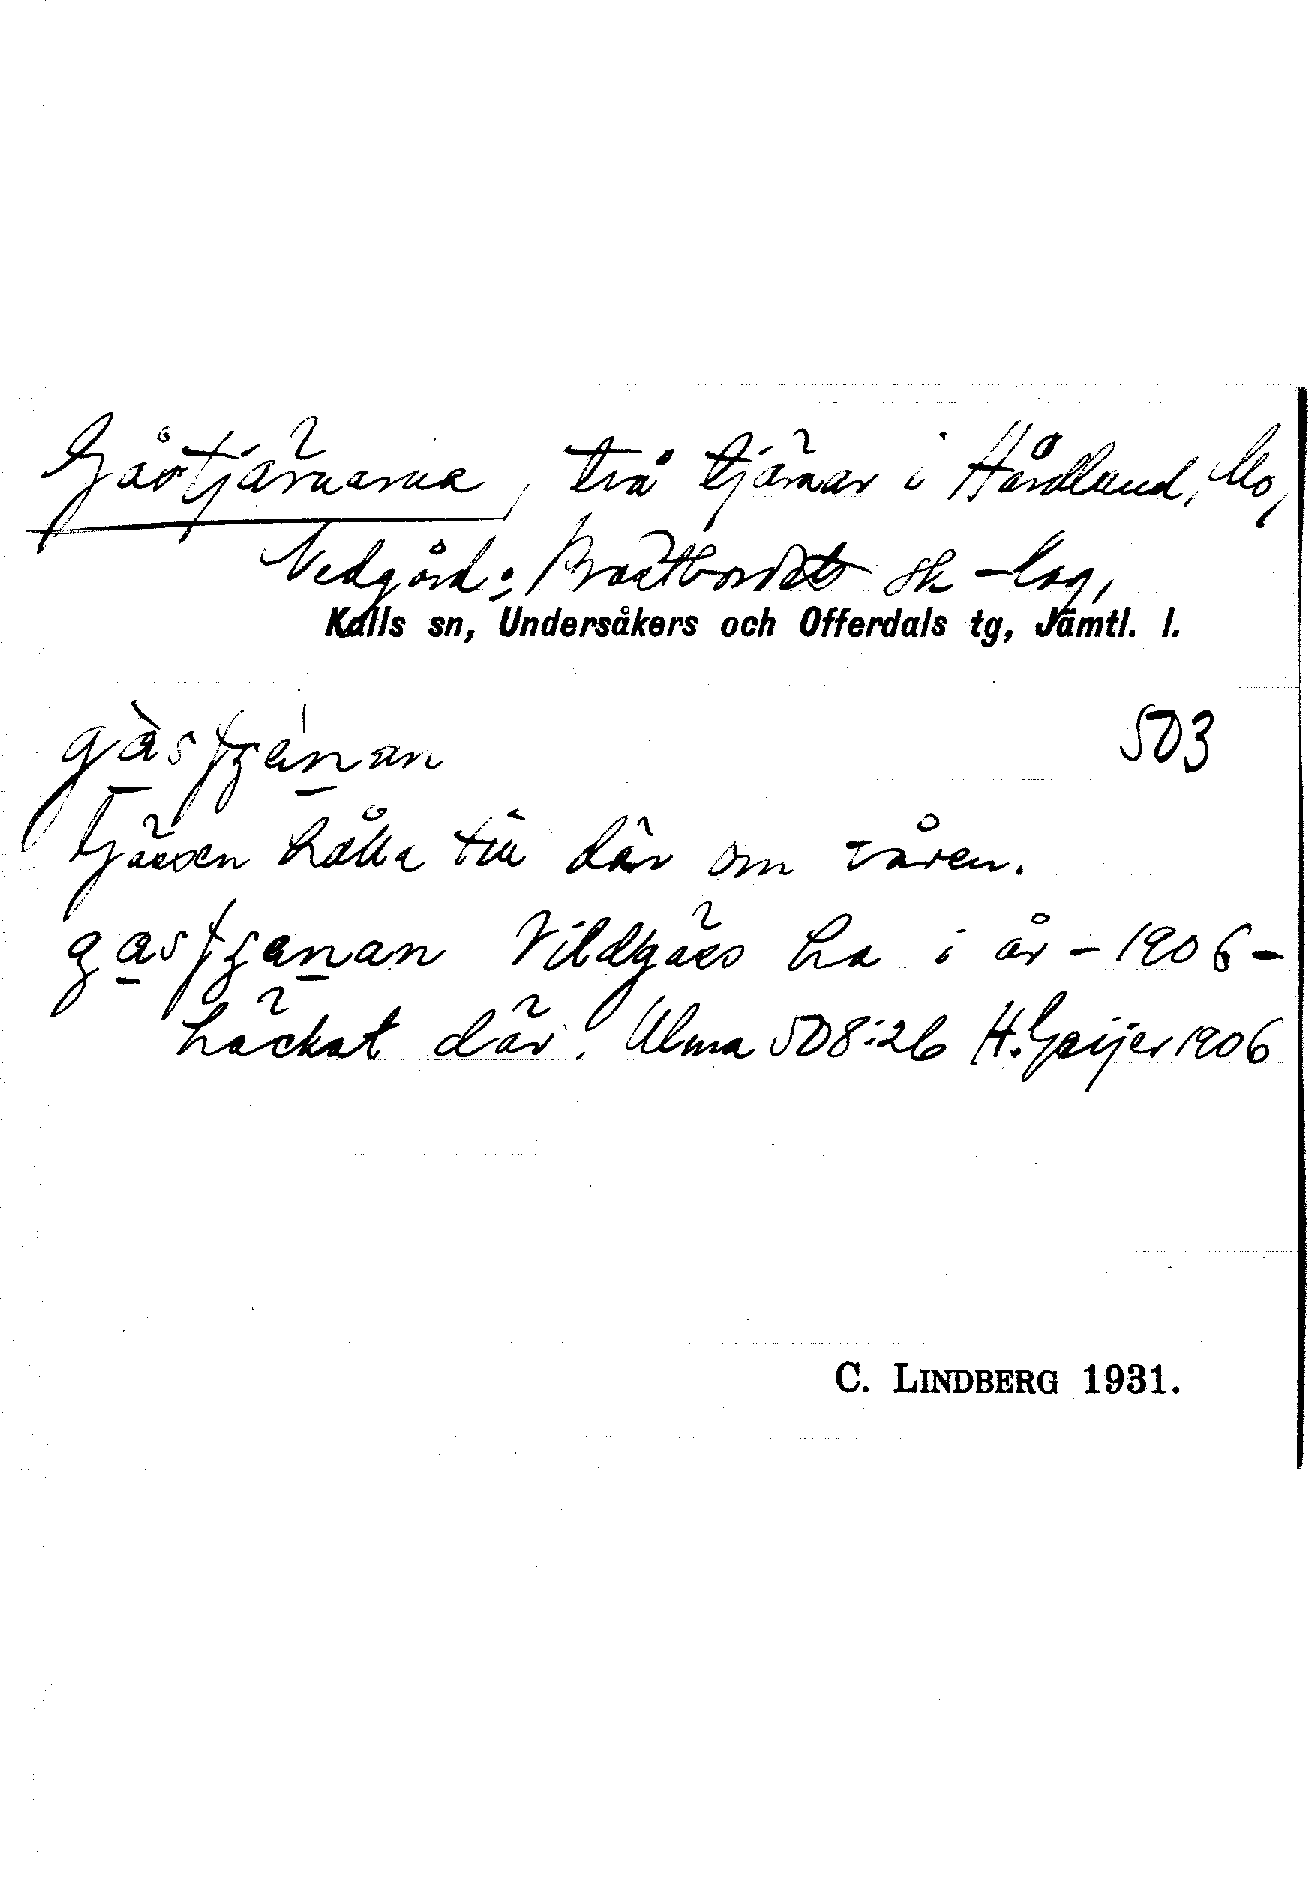 Gåstjärnarna, två tjärnar i Hårdland, Mo,
Nedgård; Brattbordets sk-lag,
Kalls sn, Undersåkers och Offerdals tg, Jämtl. l.
503
Gässen hålla till där om våren.
Vildgäss ha i år - 1906 -
häckat där. Ulma 508:26 H. Geijer 1906
C. LINDBERG 1931.